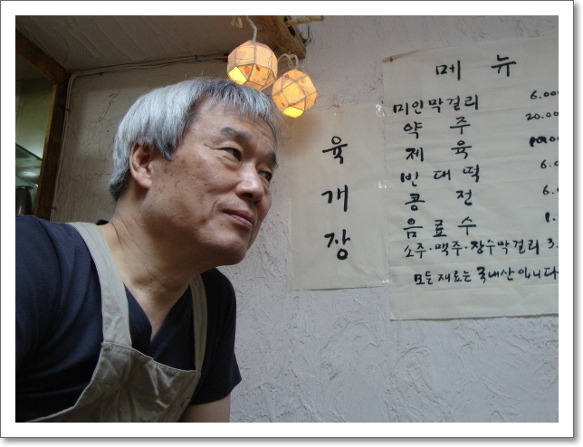 육개장
메뉴
미인막걸리 6.000
약주 20.000
제육
빈대떡 6.0
콩전 6.0
음료수 1.
소주·맥주·장수막걸리 3.
모든 재료는 국내산입니다